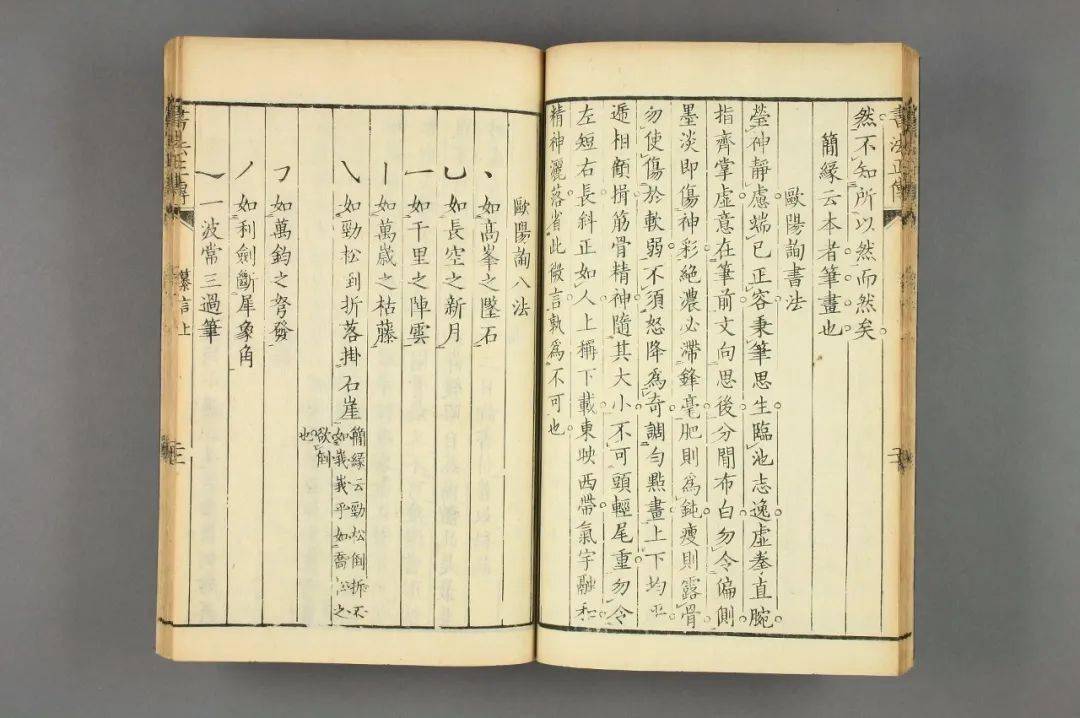 然不知所以然而然矣
簡緣云本者筆畫也
歐陽詢書法
瑩神靜慮端己正容秉筆思生臨池志逸虛拳直腕
指齊掌虛意在筆前文向思後分間布白勿令偏側
墨淡即傷神彩絕濃必滯鋒毫肥則為鈍瘦則露骨
勿使傷於軟弱不須怒降為奇調勻點畫上下均平
遞相顧揖筋骨精神隨其大小不可頭輕尾重勿令
左短右長斜正如人上稱下載東映西帶氣宇融和
精神灑落省此微言孰為不可也
書法正傳
二
歐陽詢八法
丶如高峯之墜石
乚如長空之新月
一如千里之陣雲
丨如萬歲之枯藤
乀如勁松到折落掛石崖
簡緣云勁松倒折不
如峩峩乎如喬松之
欲倒
也
𠃌如萬鈞之弩發
丿如利劍斷犀象角
㇏一波常三過筆
書法正傳
纂言上
三